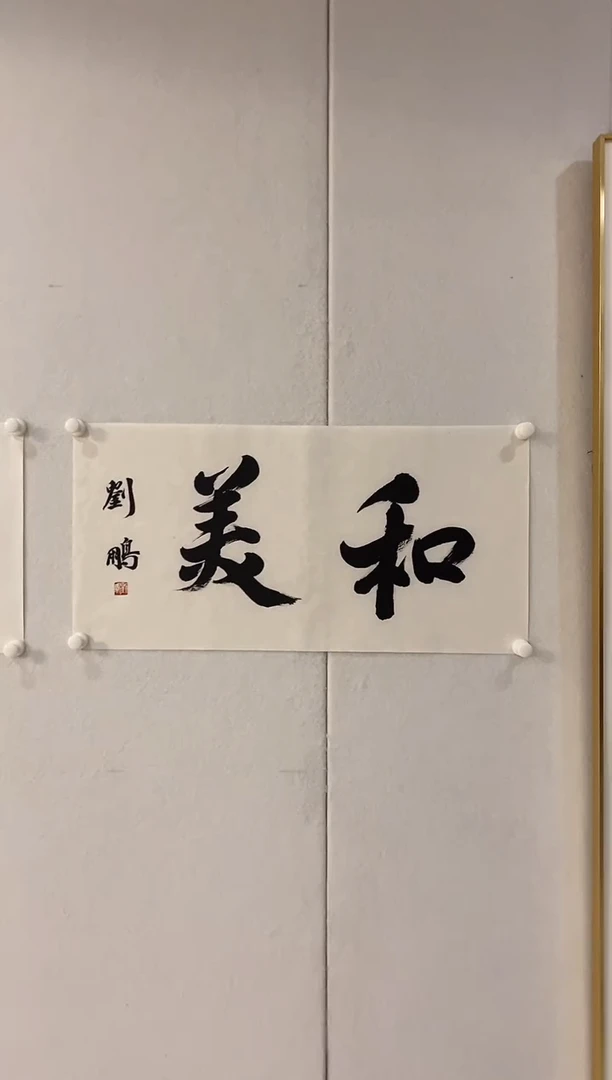 和美
劉鵬